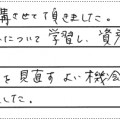 講させて頂きました。
について学習し、資産
を見直すよい機会
した。